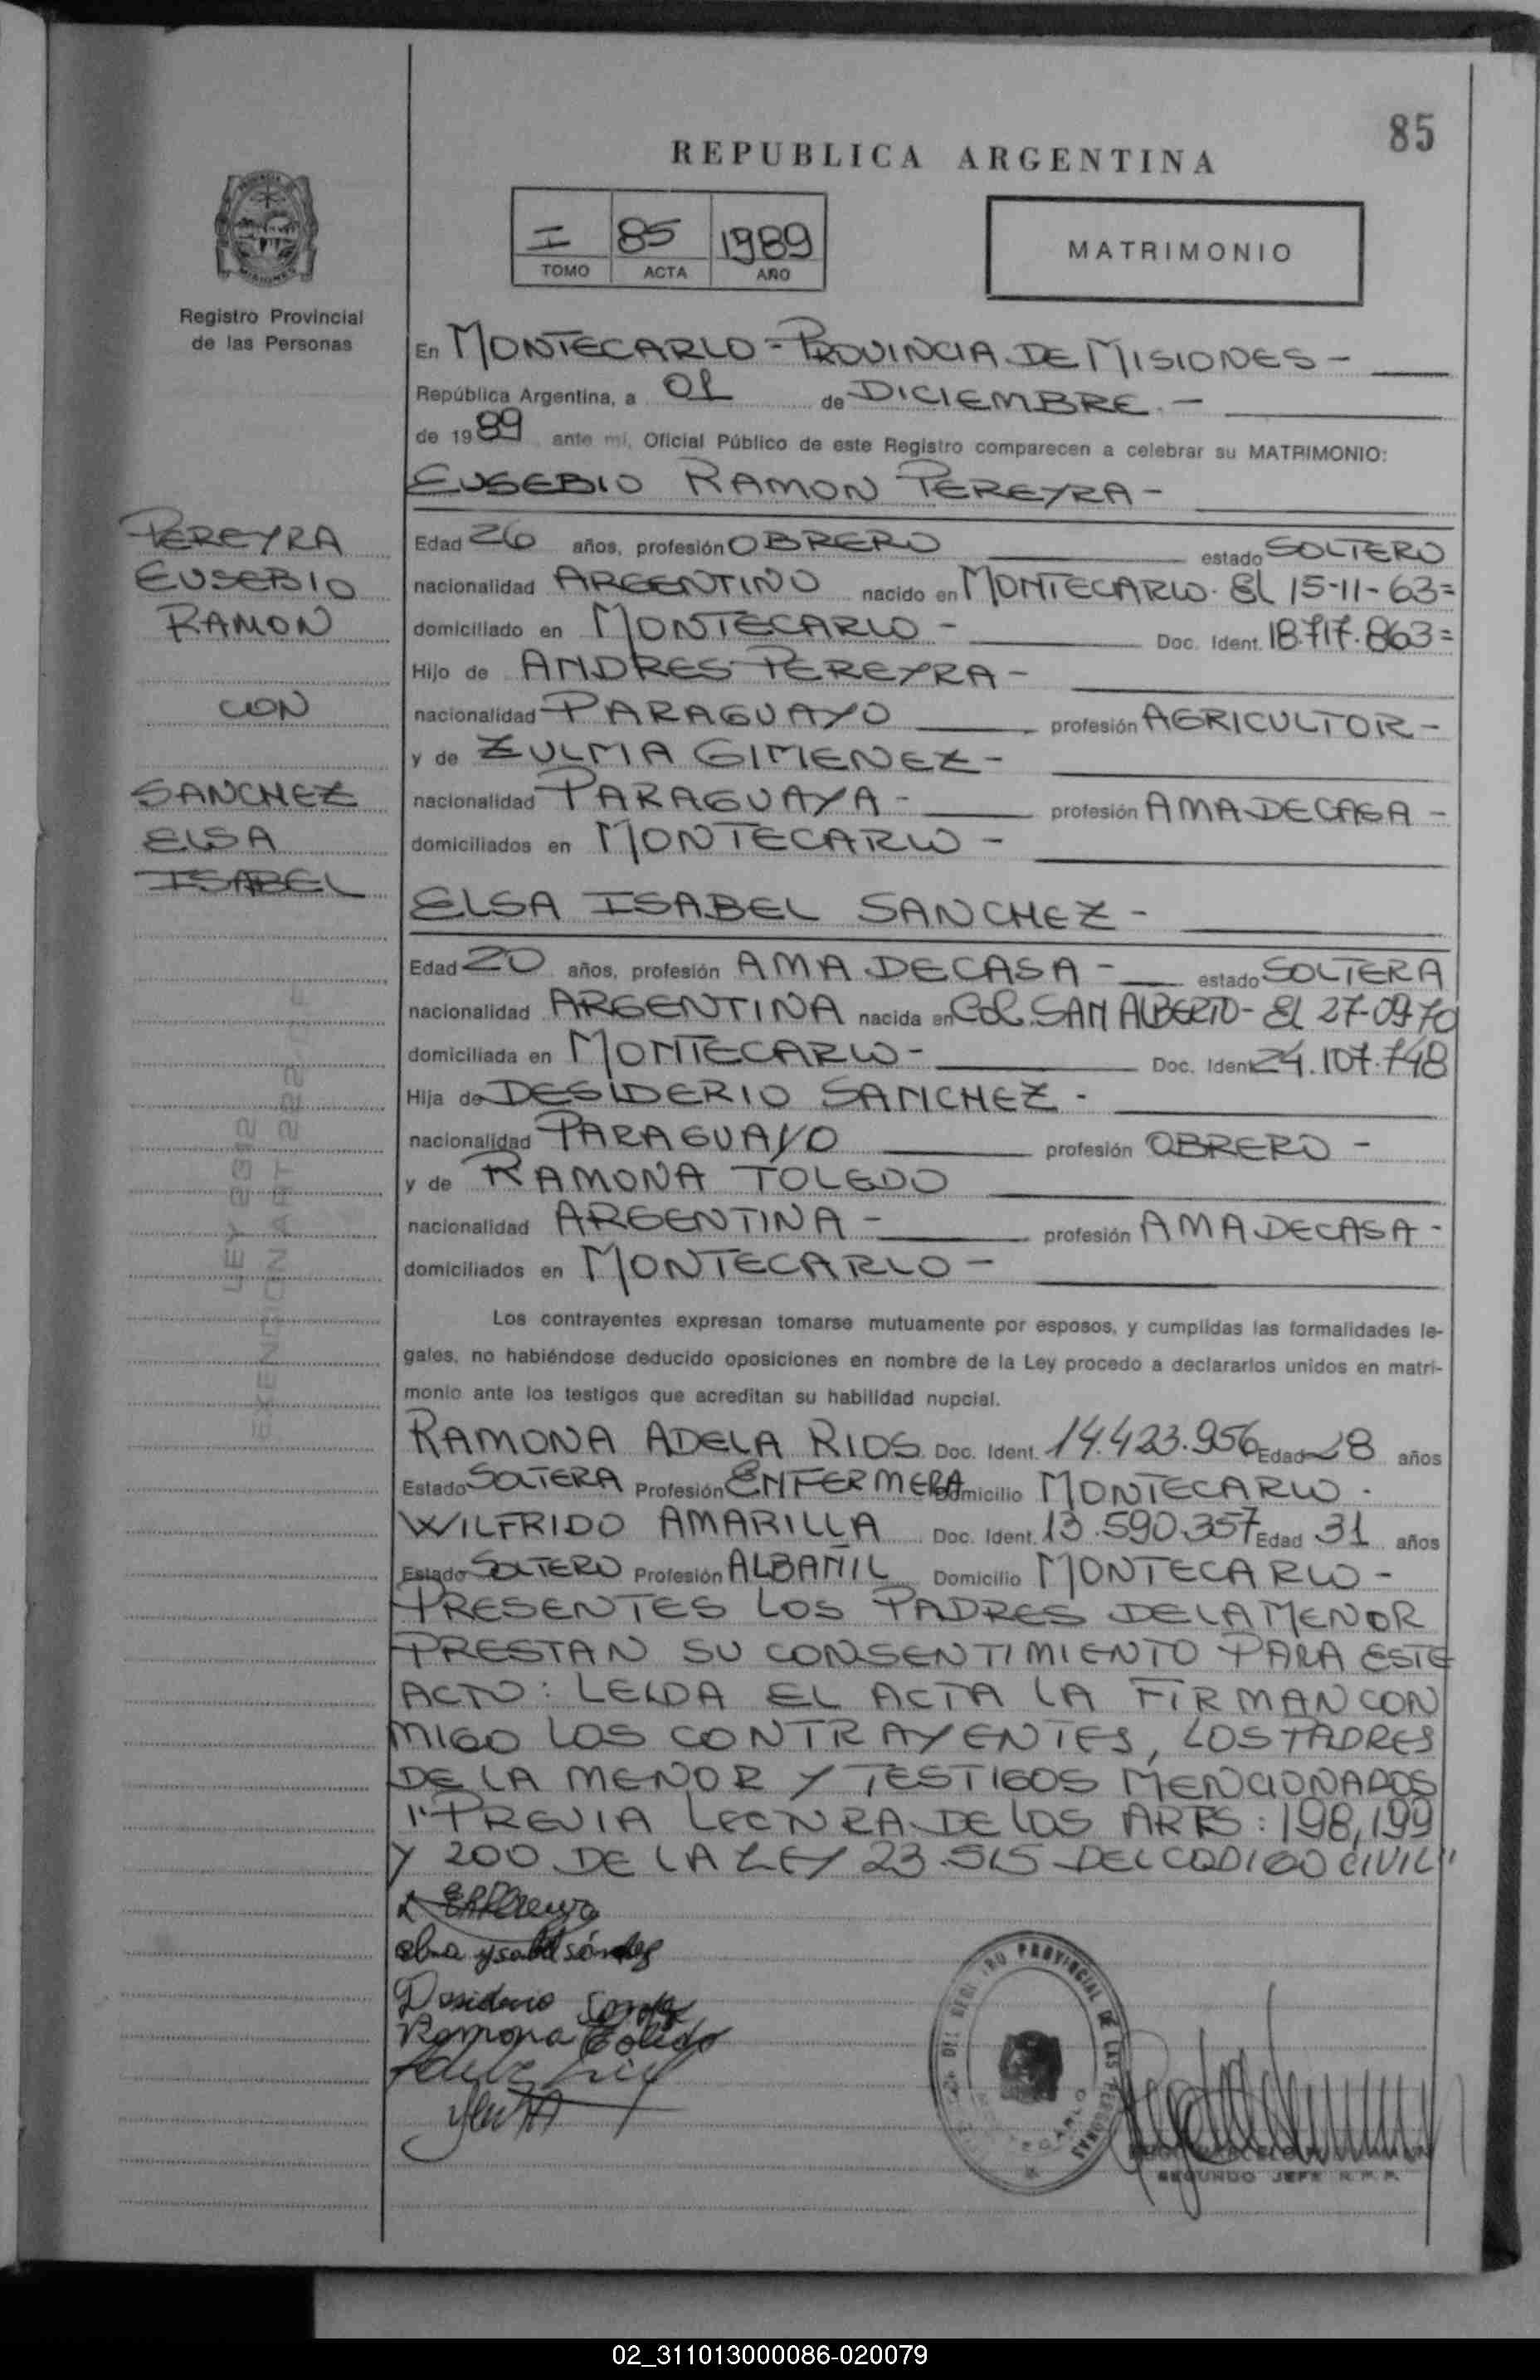 85
REPUBLICA ARGENTINA
I 85 1989
TOMO ACTA AÑO
MATRIMONIO
Registro Provincial
de las Personas
En MONTECARLO - PROVINCIA DE MISIONES -
República Argentina, a 01 de DICIEMBRE. -
de 1989 ante mí, Oficial Público de este Registro comparecen a celebrar su MATRIMONIO:
EUSEBIO RAMON PEREYRA -
PEREYRA
EUSEBIO
RAMON
CON
SANCHEZ
ELSA
ISABEL
Edad 26 años, profesión OBRERO estado SOLTERO
nacionalidad ARGENTINO nacido en MONTECARLO. El 15-11-63=
domiciliado en MONTECARLO - Doc. Ident. 18.717.863=
Hijo de ANDRES PEREYRA -
nacionalidad PARAGUAYO profesión AGRICULTOR -
y de ZULMA GIMENEZ -
nacionalidad PARAGUAYA - profesión AMA DE CASA -
domiciliados en MONTECARLO -
ELSA ISABEL SANCHEZ -
Edad 20 años, profesión AMA DE CASA - estado SOLTERA
nacionalidad ARGENTINA nacida en Col. SAN ALBERTO - El 27-09-70
domiciliada en MONTECARLO - Doc. Ident. 24.107.748
Hija de DESIDERIO SANCHEZ -
nacionalidad PARAGUAYO profesión OBRERO -
y de RAMONA TOLEDO
nacionalidad ARGENTINA - profesión AMA DE CASA -
domiciliados en MONTECARLO -
Los contrayentes expresan tomarse mutuamente por esposos, y cumplidas las formalidades le-
gales, no habiéndose deducido oposiciones en nombre de la Ley procedo a declararlos unidos en matri-
monio ante los testigos que acreditan su habilidad nupcial.
RAMONA ADELA RIOS Doc. Ident. 14.423.956 Edad 28 años
Estado SOLTERA Profesión ENFERMERA Domicilio MONTECARLO.
WILFRIDO AMARILLA Doc. Ident. 13.590.357 Edad 31 años
Estado SOLTERO Profesión ALBAÑIL Domicilio MONTECARLO -
PRESENTES LOS PADRES DE LA MENOR
PRESTAN SU CONSENTIMIENTO PARA ESTE
ACTO: LEIDA EL ACTA LA FIRMAN CON
MIGO LOS CONTRAYENTES, LOS PADRES
DE LA MENOR Y TESTIGOS MENCIONADOS
"PREVIA LECTURA DE LOS ARTS: 198,199
Y 200 DE LA LEY 23.515 DEL CODIGO CIVIL"
Desiderio
Ramona Toledo
PROVINCIAL DE LAS PERSONAS
SEGUNDO JEFE R. P. P.
02_311013000086-020079